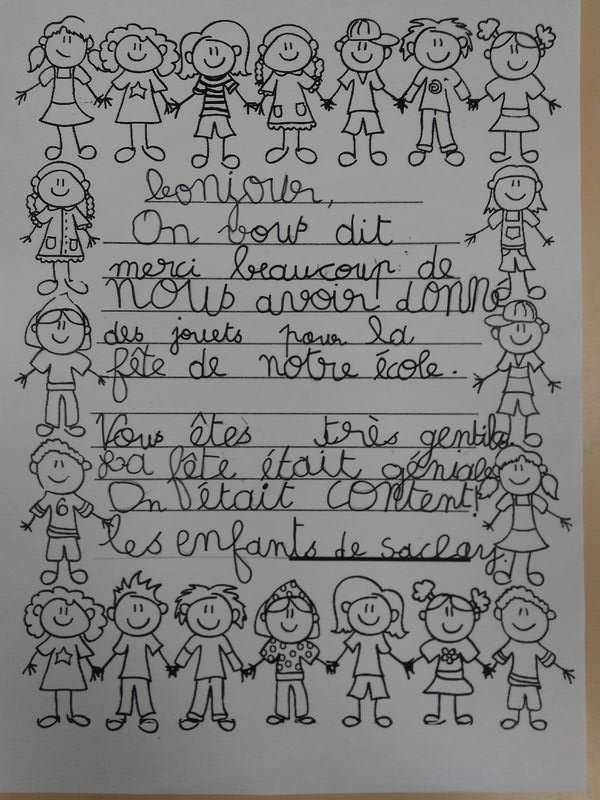 bonjour,
On vous dit
merci beaucoup de
nous avoir donné
des jouets pour la
fête de notre école.
Vous êtes très gentils.
La fête était géniale
On était content!
les enfants de saclay.
6